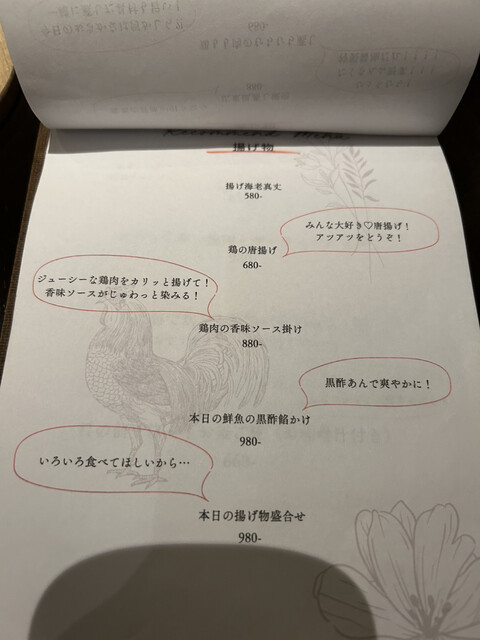 Recommend Menu
揚げ物
揚げ海老真丈
580-
みんな大好き♡唐揚げ！
アツアツをどうぞ！
鶏の唐揚げ
680-
ジューシーな鶏肉をカリッと揚げて！
香味ソースがじゅわっと染みる！
鶏肉の香味ソース掛け
880-
黒酢あんで爽やかに！
本日の鮮魚の黒酢餡かけ
980-
いろいろ食べてほしいから…
本日の揚げ物盛合せ
980-